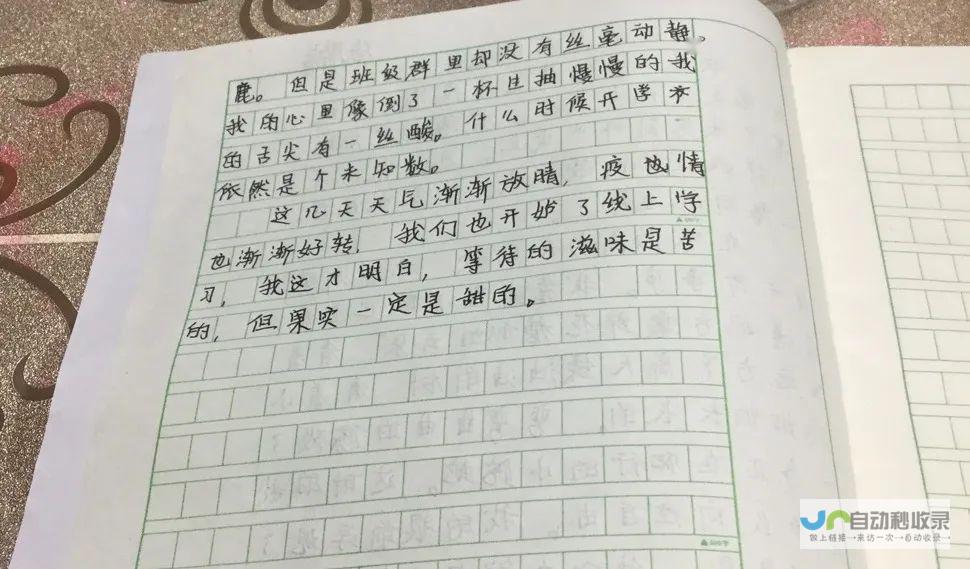 鹿。但是班级群里却没有丝毫动静。
我的心里像倒了一杯生抽慢慢的我
的舌尖有一丝酸。什么时候开学
依然是个未知数。
这几天天气渐渐放晴，疫也情
也渐渐好转，我们也开始了线上学
习，我这才明白，等待的滋味是苦
的，但果实一定是甜的。
自动秒收录
做上链接→来访一次→自动收录→